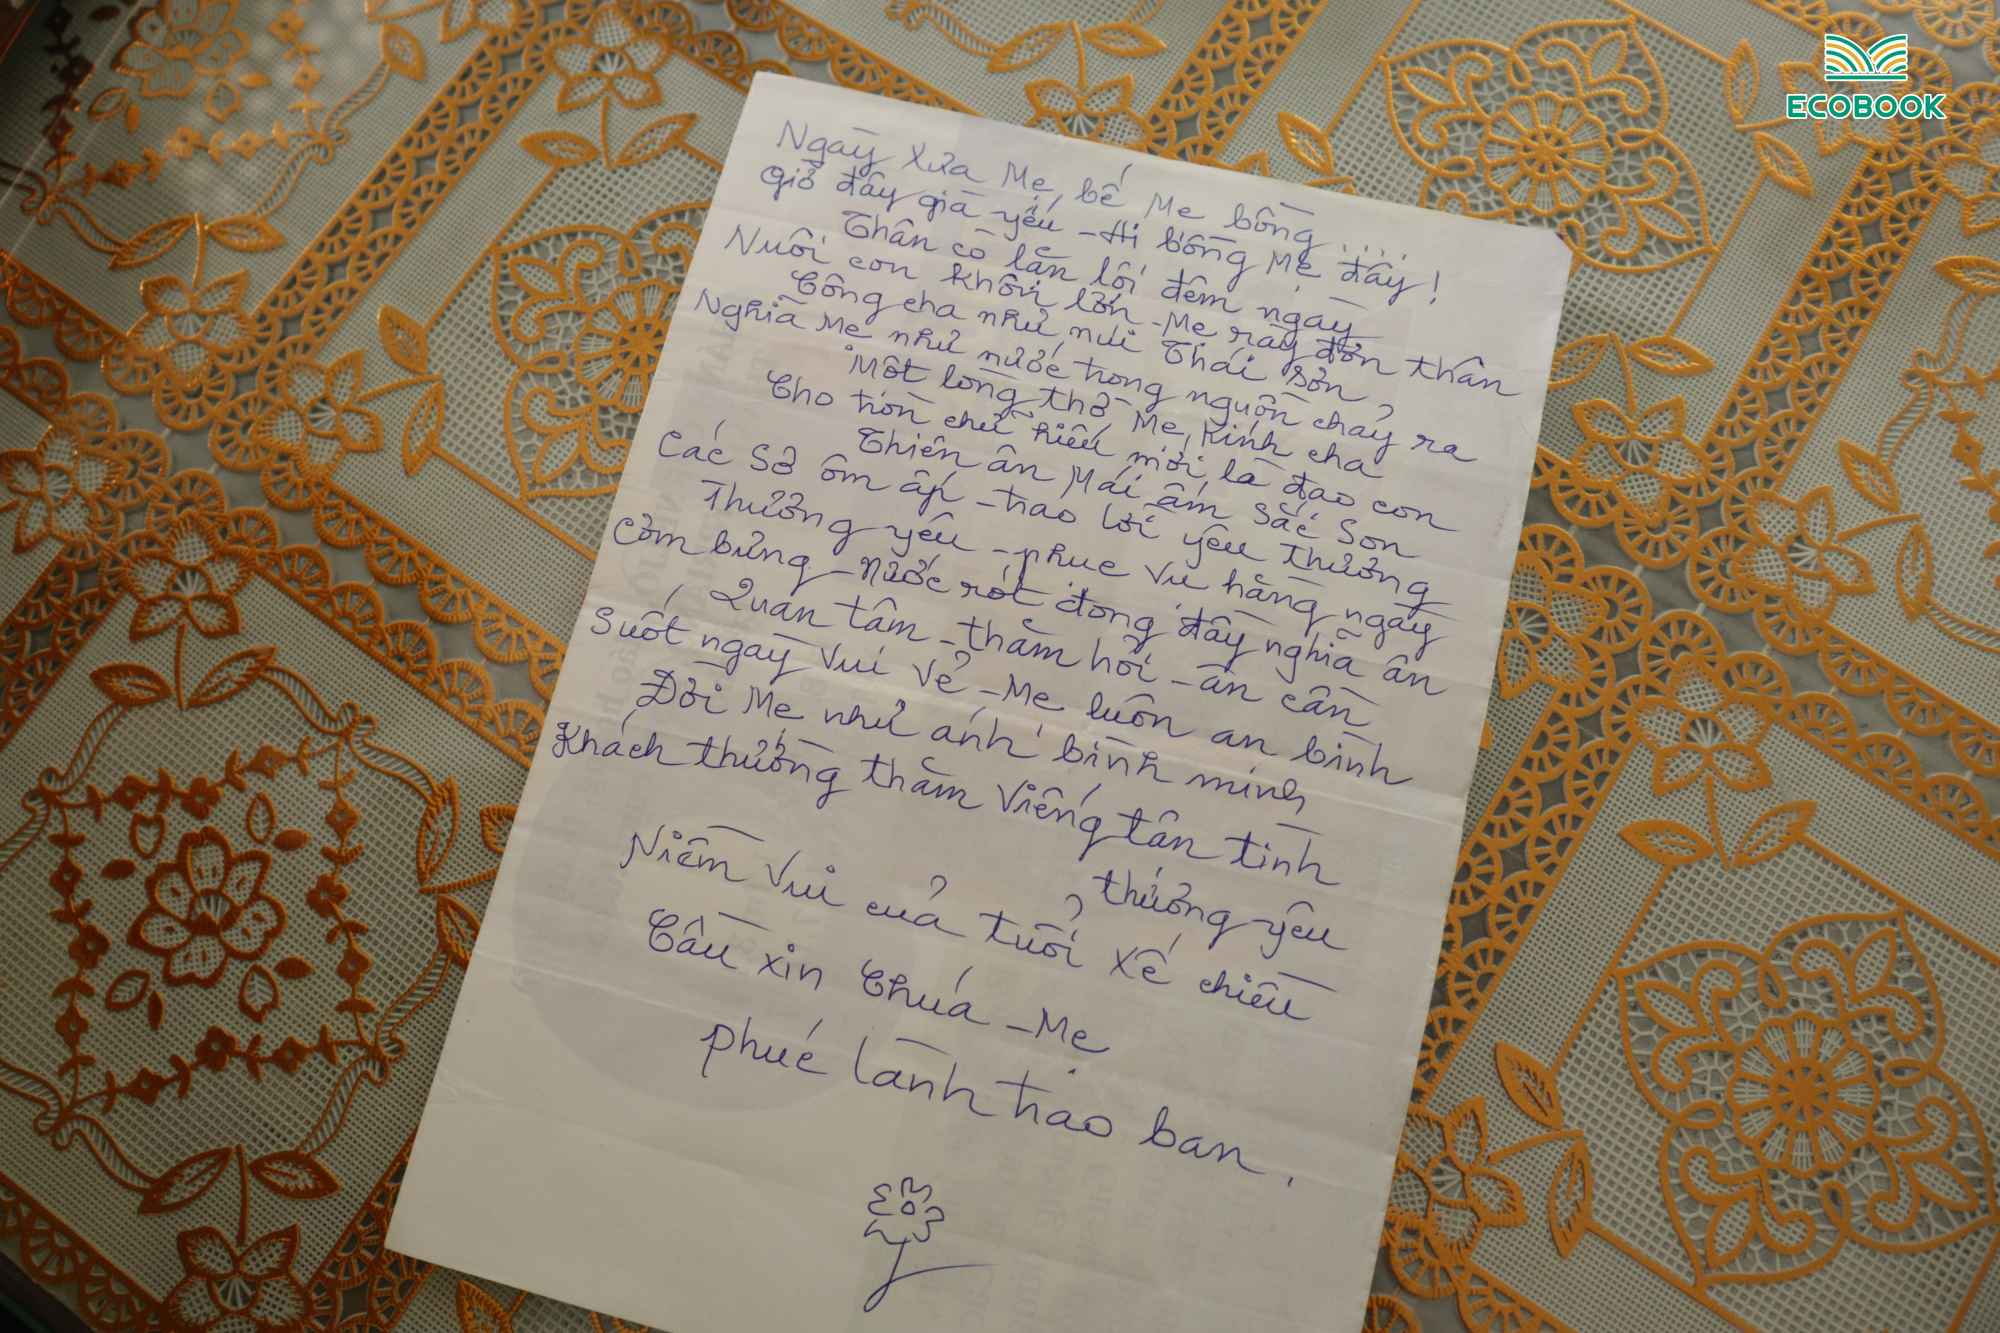 ECOBOOK
Ngày xưa Mẹ bế Mẹ bồng....
Giờ đây già yếu - Ai bồng Mẹ đây!
Thân cò lặn lội đêm ngày
Nuôi con khôn lớn - Mẹ rày đơn thân
Công cha như núi Thái Sơn
Nghĩa Mẹ như nước trong nguồn chảy ra
Một lòng thờ Mẹ kính cha
Cho tròn chữ hiếu mới là đạo con
Thiên ân Mái ấm sắc son
Các Sơ ôm ấp - trao lời yêu thương
Thương yêu - phục vụ hằng ngày
Cơm bưng - nước rót đong đầy nghĩa ân
Quan tâm - thăm hỏi - ân cần
Suốt ngày vui vẻ - Mẹ luôn an bình
Đời Mẹ như ánh bình minh
Khách thường thăm viếng tận tình
thương yêu
Niềm vui của tuổi xế chiều
Cầu xin Chúa - Mẹ
phúc lành trao ban.